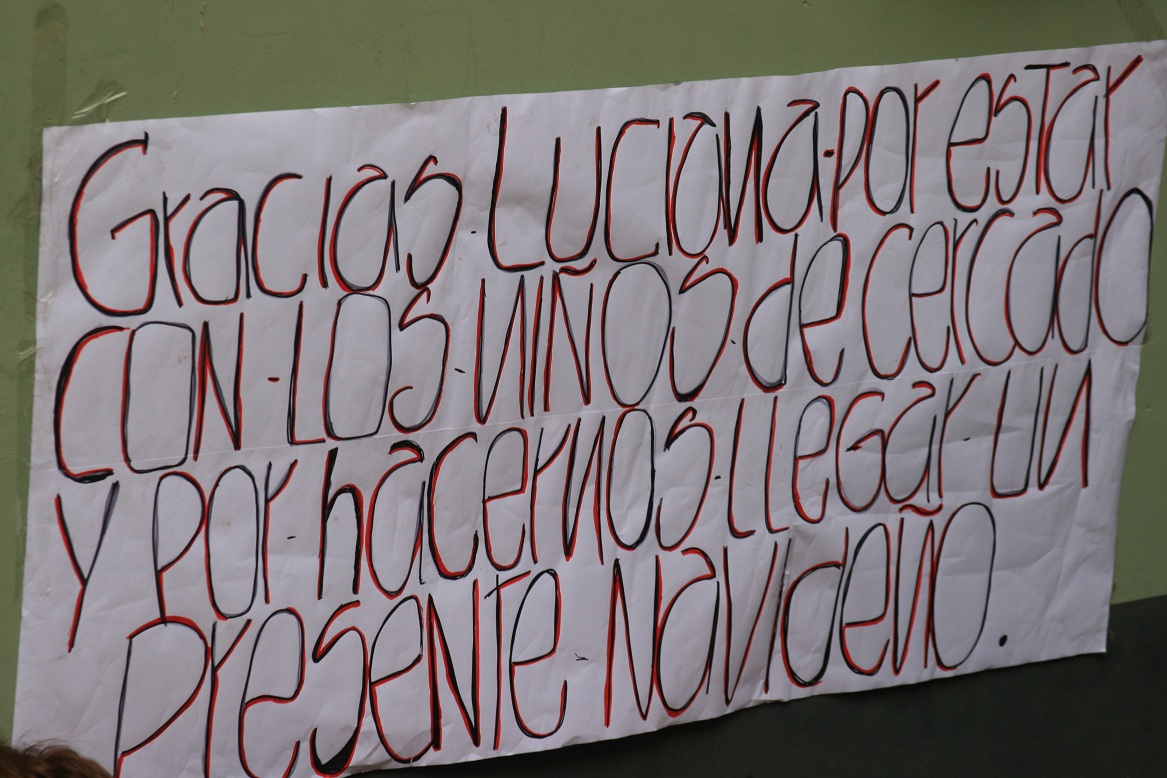 Gracias Luciana por estar
CON LOS NIÑOS de cercado
Y POR hacernos LLEGAR UN
Presente Navideño.